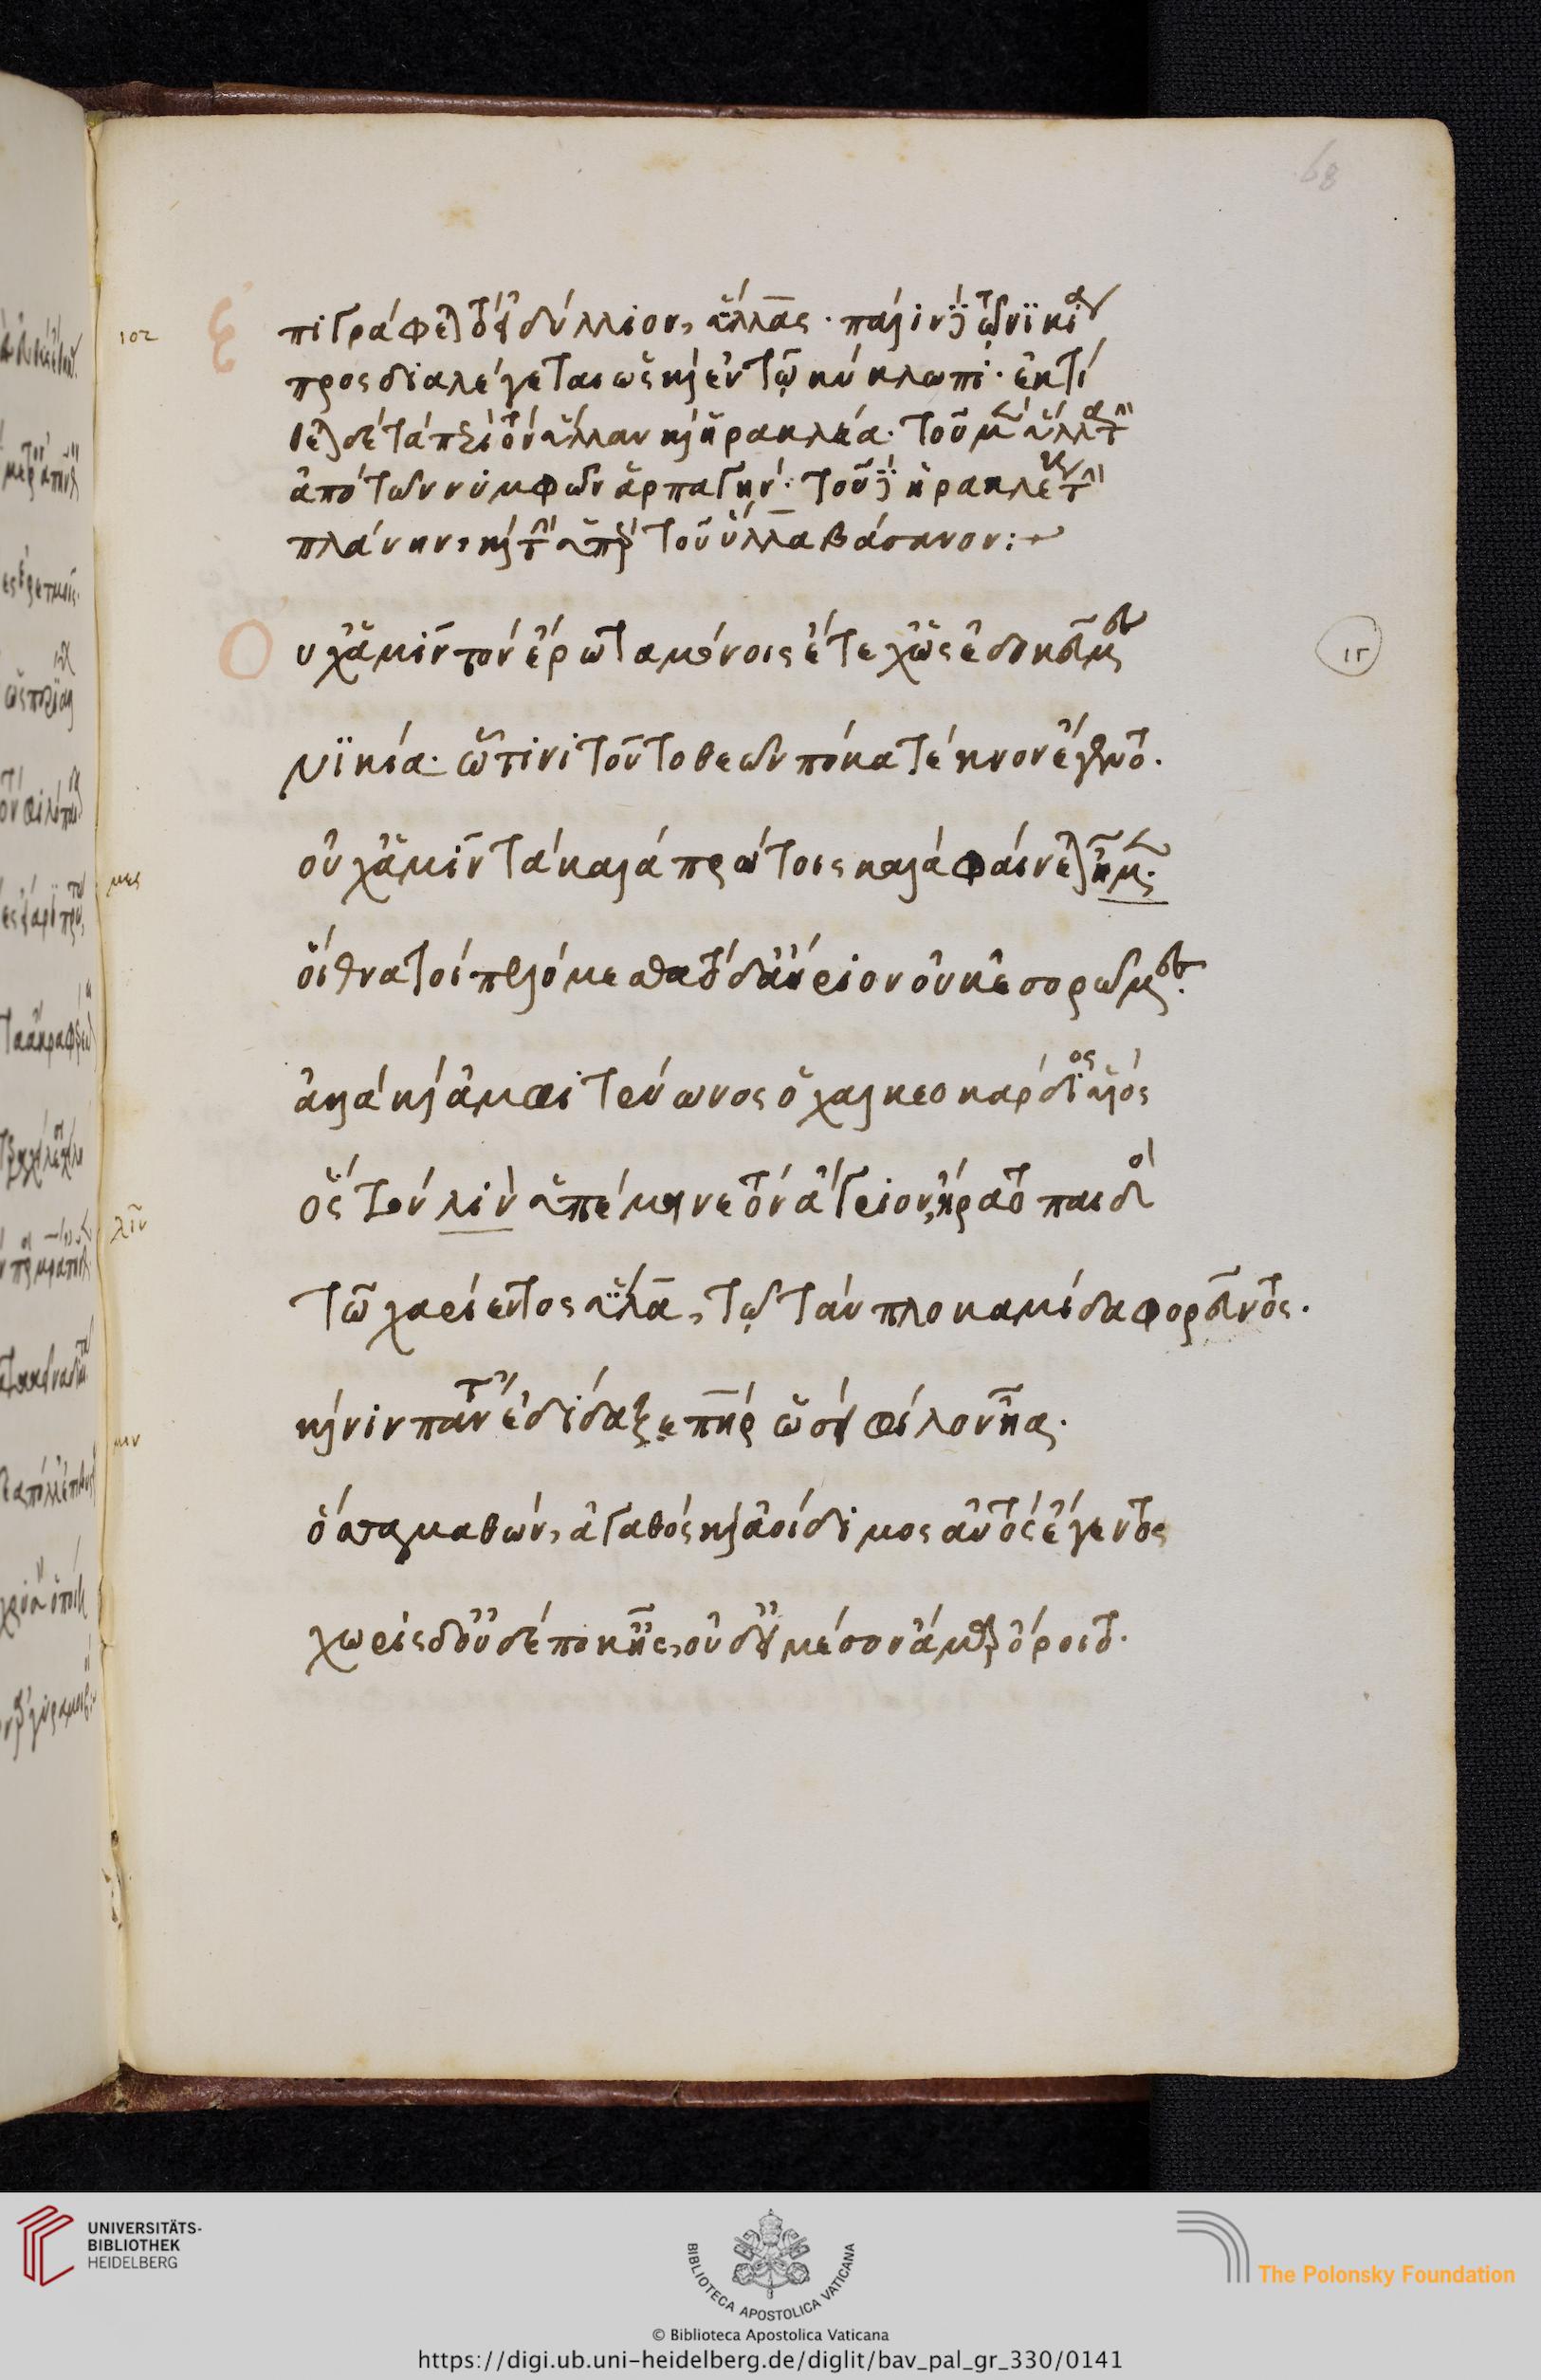 68
102
Ἐπιγράφεται τὸ εἰδύλλιον, ὕλλας· πάλιν δὲ τῷ νικίᾳ
προσδιαλέγεται ὡς καὶ ἐν τῷ κύκλωπι· ἐκτί
θεται δὲ τὰ περὶ τὸν ὕλλαν καὶ ἡρακλέα· τοῦ μὲν ὕλλα τὴν
ἀπὸ τῶν νυμφῶν ἁρπαγήν· τοῦ δὲ ἡρακλέους τὴν
πλάνην, καὶ τὴν τοῦ ὕλλα βάσανον:
Οὐχ ἁμῖν τὸν ἔρωτα μόνοις ἔτεχ' ὡς ἐδοκοῦμες
ιγ
νικία· ᾧτινι τοῦτο θεῶν πόκα τέκνον ἔγεντο.
οὐχ ἁμῖν τὰ καλὰ πράτοις καλὰ φαίνεται ἦμεν.
μες
οἳ θνατοὶ πελόμεσθα τὸ δ' αὔριον οὐκ ἐσορῶμες.
ἀλλὰ καὶ ἀμφιτρύωνος ὁ χαλκεοκάρδιος υἱός
ὃς τὸν λῖν ὑπέμεινε τὸν ἄγριον, ἤρατο παιδὸς
λῖν
τῶ χαρίεντος ὕλα, τῶ τὰν πλοκαμίδα φορεῦντος.
καί νιν πάντ' ἐδίδαξε πατὴρ ὡσεὶ φίλον υἷα.
μιν
ὅσα μαθών, ἀγαθὸς καὶ ἀοίδιμος αὐτὸς ἔγεντο
χωρὶς δ' οὐδέποκ' ἦς, οὐδ' εἰ μέσον ἆμαρ ὄροιτο.
UNIVERSITÄTS-
BIBLIOTHEK
HEIDELBERG
BIBLIOTECA APOSTOLICA VATICANA
The Polonsky Foundation
© Biblioteca Apostolica Vaticana
https://digi.ub.uni-heidelberg.de/diglit/bav_pal_gr_330/0141